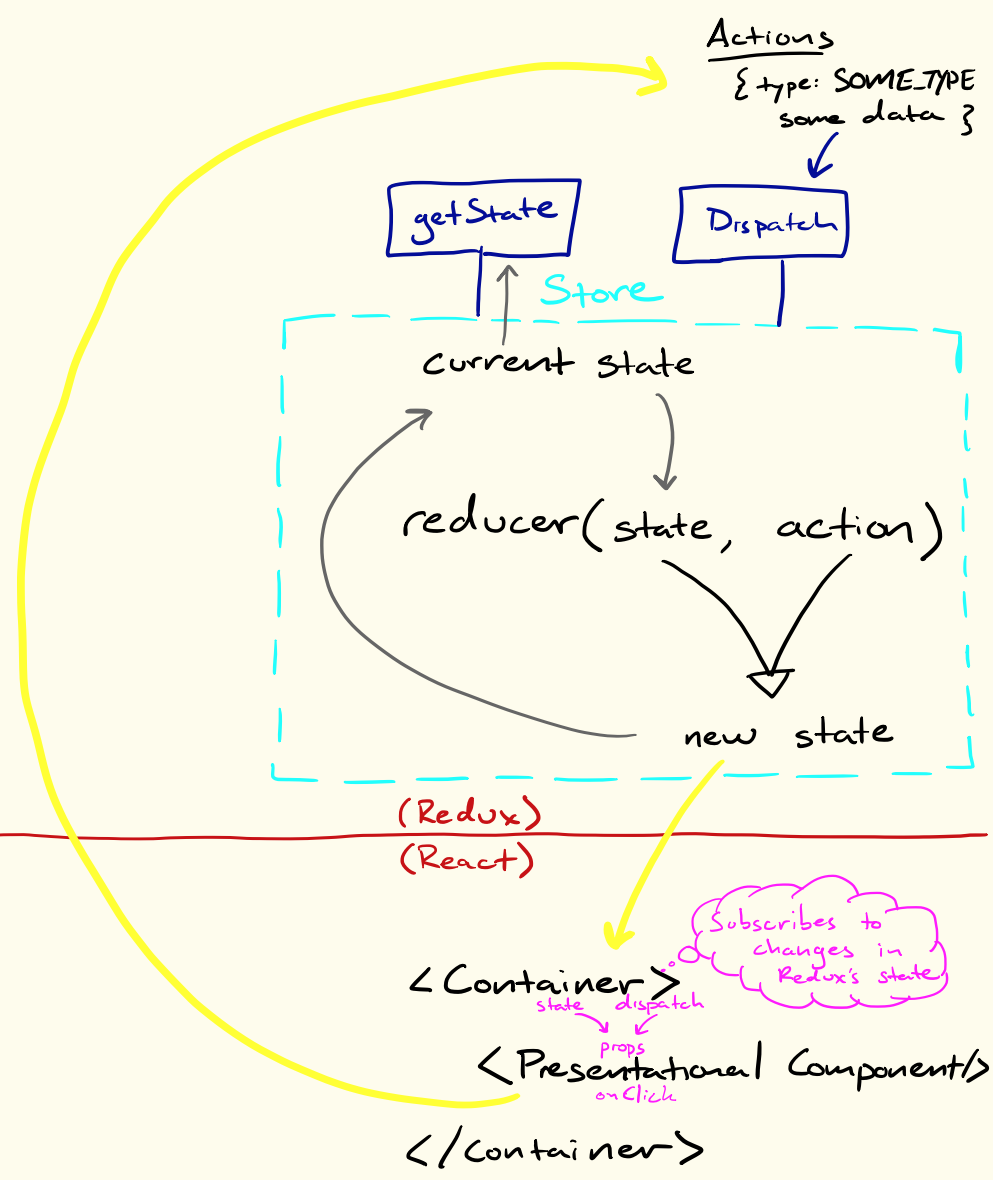 Actions
{ type: SOME_TYPE
some data }
getState
Dispatch
Store
current state
reducer(state, action)
new state
(Redux)
(React)
Subscribes to
changes in
Redux's state
<Container>
state dispatch
props
<Presentational Component/>
onClick
</Container>